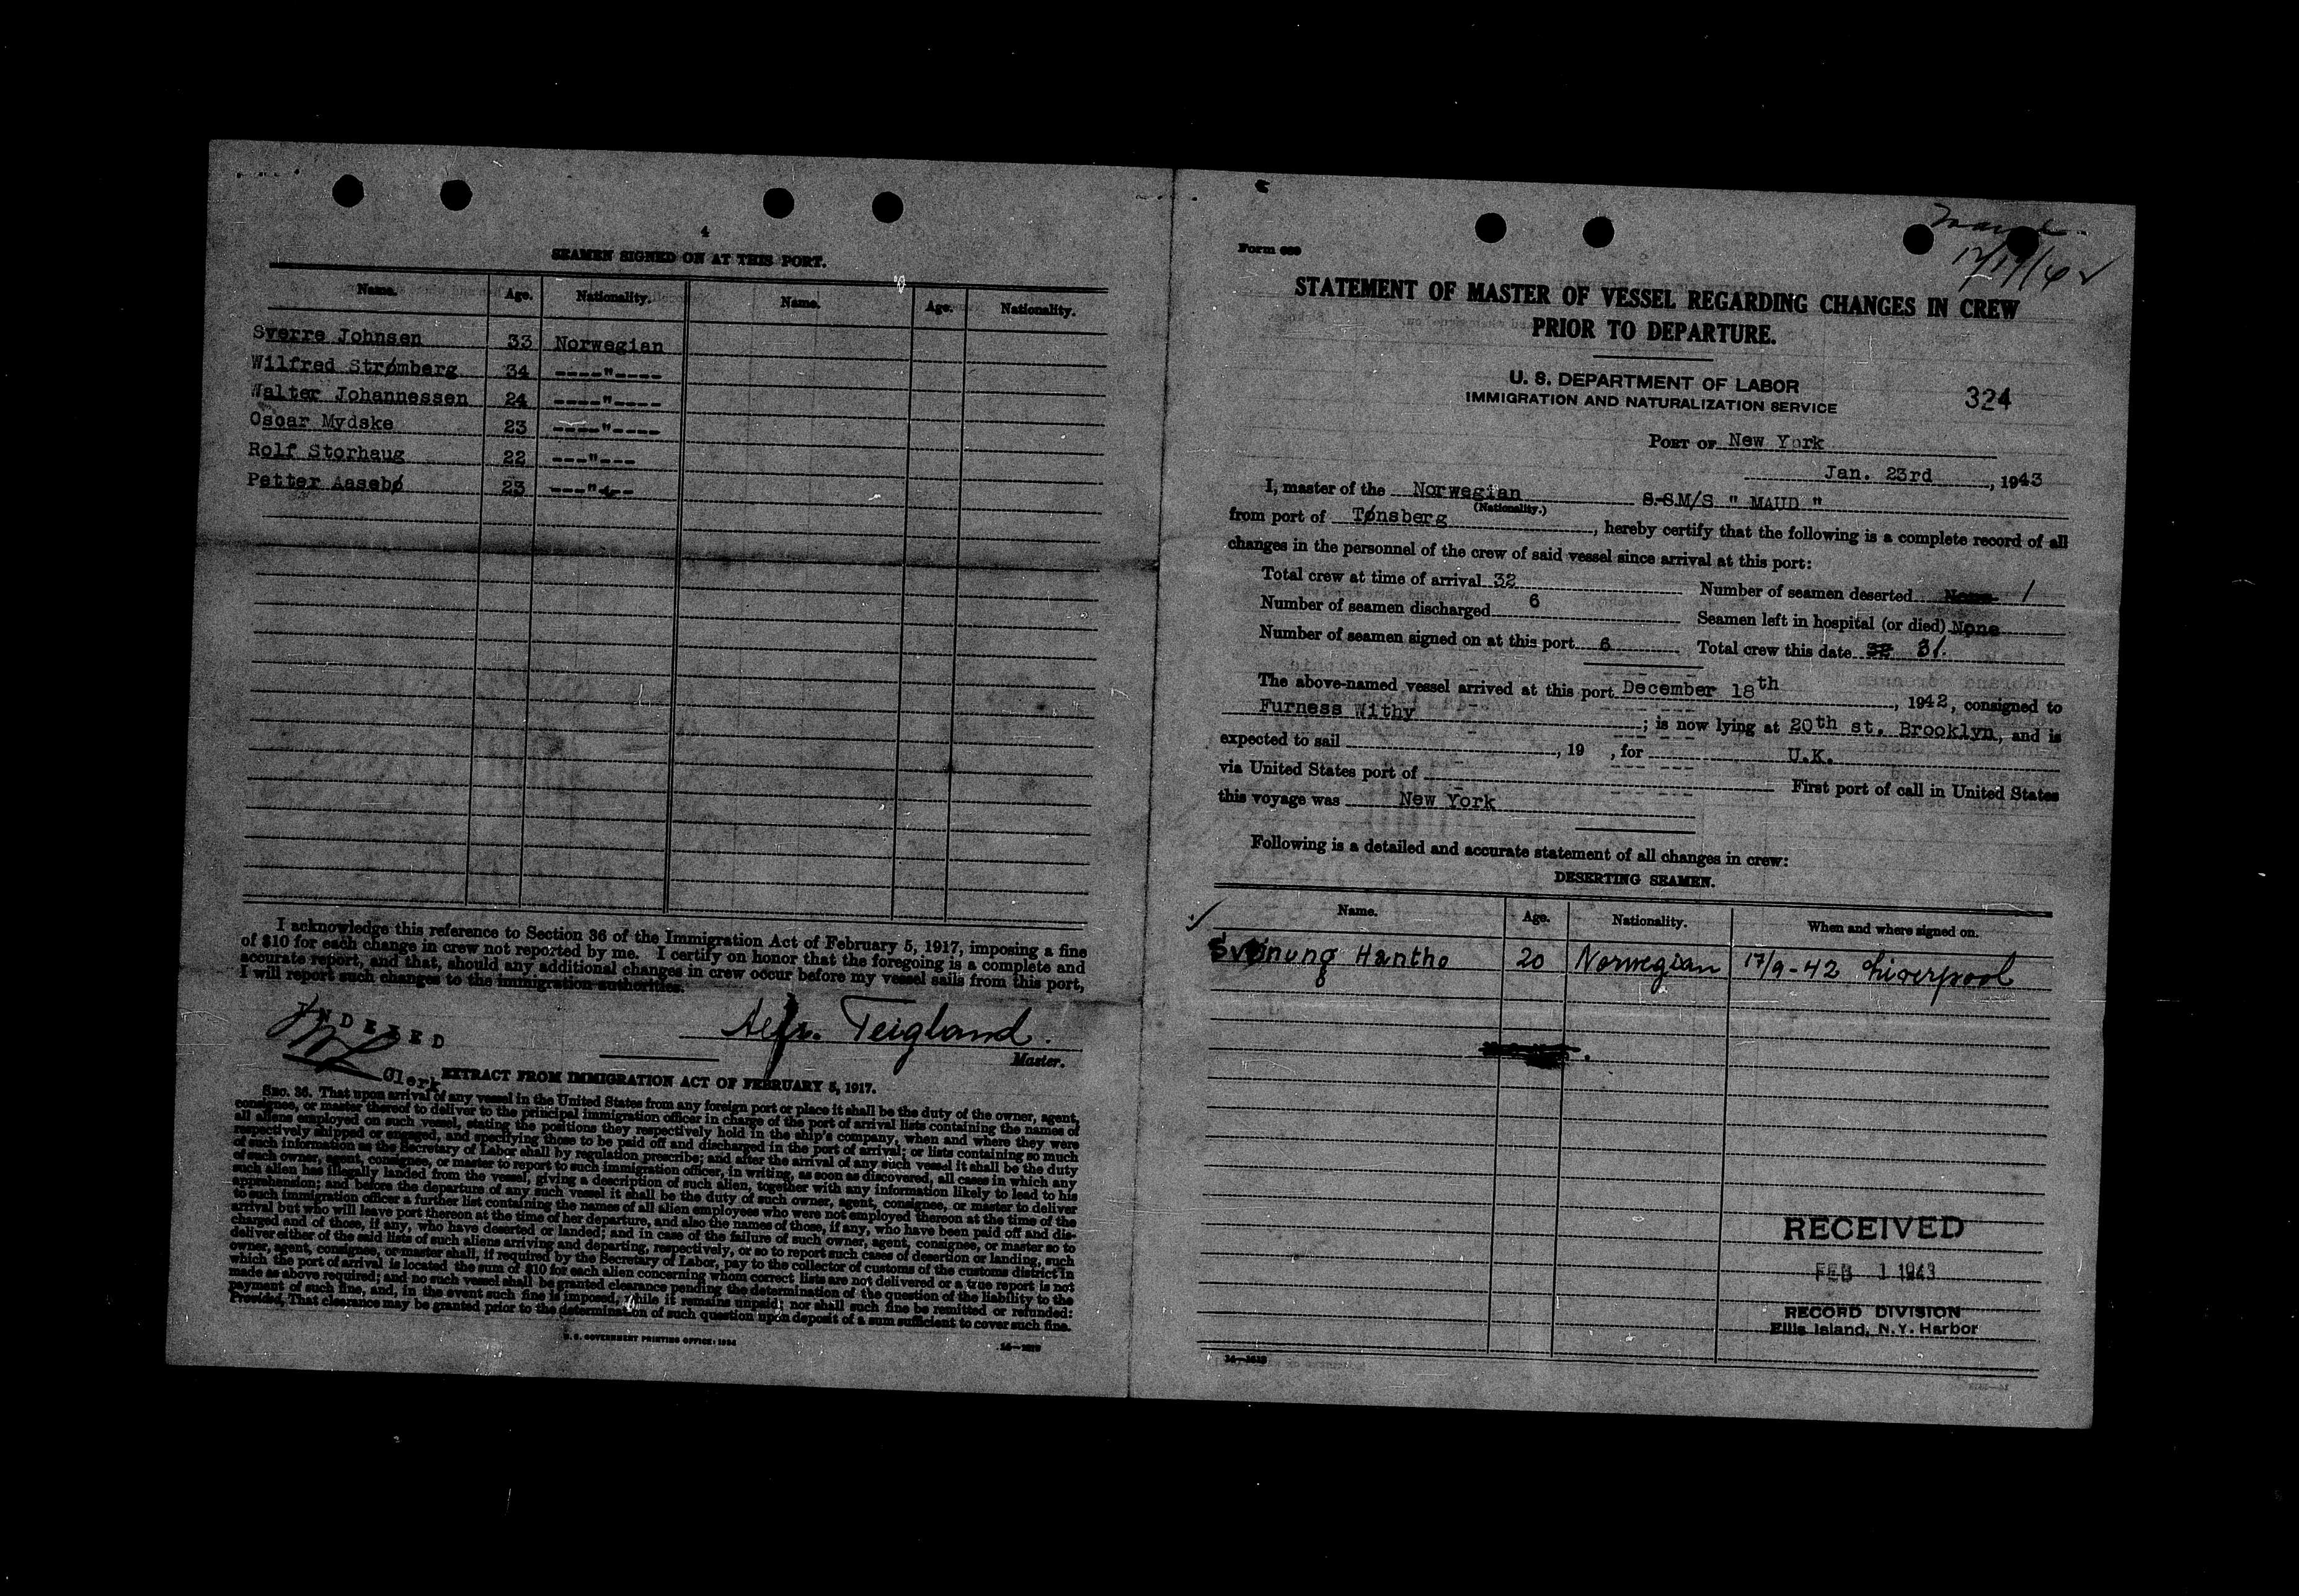 4
SEAMEN SIGNED ON AT THIS PORT.
Name. Age. Nationality. Name. Age. Nationality.
Sverre Johnsen 33 Norwegian
Wilfred Strømberg 34 ----"----
Walter Johannessen 24 ----"----
Oscar Mydske 23 ----"----
Rolf Storhaug 22 ---"---
Petter Aasebø 23 ---"---
I acknowledge this reference to Section 36 of the Immigration Act of February 5, 1917, imposing a fine
of $10 for each change in crew not reported by me. I certify on honor that the foregoing is a complete and
accurate report, and that, should any additional changes in crew occur before my vessel sails from this port,
I will report such changes to the immigration authorities.
INDEXED
Teigland.
Master.
Clerk
EXTRACT FROM IMMIGRATION ACT OF FEBRUARY 5, 1917.
SEC. 36. That upon arrival of any vessel in the United States from any foreign port or place it shall be the duty of the owner, agent,
consignee, or master thereof to deliver to the principal immigration officer in charge of the port of arrival lists containing the names of
all aliens employed on such vessel, stating the positions they respectively hold in the ship's company, when and where they were
respectively shipped or engaged, and specifying those to be paid off and discharged in the port of arrival; or lists containing so much
of such information as the Secretary of Labor shall by regulation prescribe; and after the arrival of any such vessel it shall be the duty
of such owner, agent, consignee, or master to report to such immigration officer, in writing, as soon as discovered, all cases in which any
such alien has illegally landed from the vessel, giving a description of such alien, together with any information likely to lead to his
apprehension; and before the departure of any such vessel it shall be the duty of such owner, agent, consignee, or master to deliver
to such immigration officer a further list containing the names of all alien employees who were not employed thereon at the time of the
arrival but who will leave port thereon at the time of her departure, and also the names of those, if any, who have been paid off and dis-
charged and of those, if any, who have deserted or landed; and in case of the failure of such owner, agent, consignee, or master so to
deliver either of the said lists of such aliens arriving and departing, respectively, or so to report such cases of desertion or landing, such
owner, agent, consignee, or master shall, if required by the Secretary of Labor, pay to the collector of customs of the customs district in
which the port of arrival is located the sum of $10 for each alien concerning whom correct lists are not delivered or a true report is not
made as above required; and no such vessel shall be granted clearance pending the determination of the question of the liability to the
payment of such fine, and, in the event such fine is imposed, while it remains unpaid; nor shall such fine be remitted or refunded:
Provided, That clearance may be granted prior to the determination of such question upon deposit of a sum sufficient to cover such fine.
U. S. GOVERNMENT PRINTING OFFICE: 1934
Maud
Form 689
STATEMENT OF MASTER OF VESSEL REGARDING CHANGES IN CREW
PRIOR TO DEPARTURE.
U. S. DEPARTMENT OF LABOR
IMMIGRATION AND NATURALIZATION SERVICE
324
PORT OF New York
Jan. 23rd, 1943
I, master of the Norwegian S.S.M/S " MAUD "
(Nationality.)
from port of Tønsberg, hereby certify that the following is a complete record of all
changes in the personnel of the crew of said vessel since arrival at this port:
Total crew at time of arrival 32 Number of seamen deserted None 1
Number of seamen discharged 6 Seamen left in hospital (or died) None
Number of seamen signed on at this port 6 Total crew this date 32 31.
The above-named vessel arrived at this port December 18th, 1942, consigned to
Furness Withy; is now lying at 20th st. Brooklyn, and is
expected to sail , 19 , for U.K.
via United States port of First port of call in United States
this voyage was New York
Following is a detailed and accurate statement of all changes in crew:
DESERTING SEAMEN.
Name. Age. Nationality. When and where signed on.
Hantho 20 Norwegian 17/9-42 Liverpool
RECEIVED
FEB 1 1943
RECORD DIVISION
Ellis Island, N.Y. Harbor